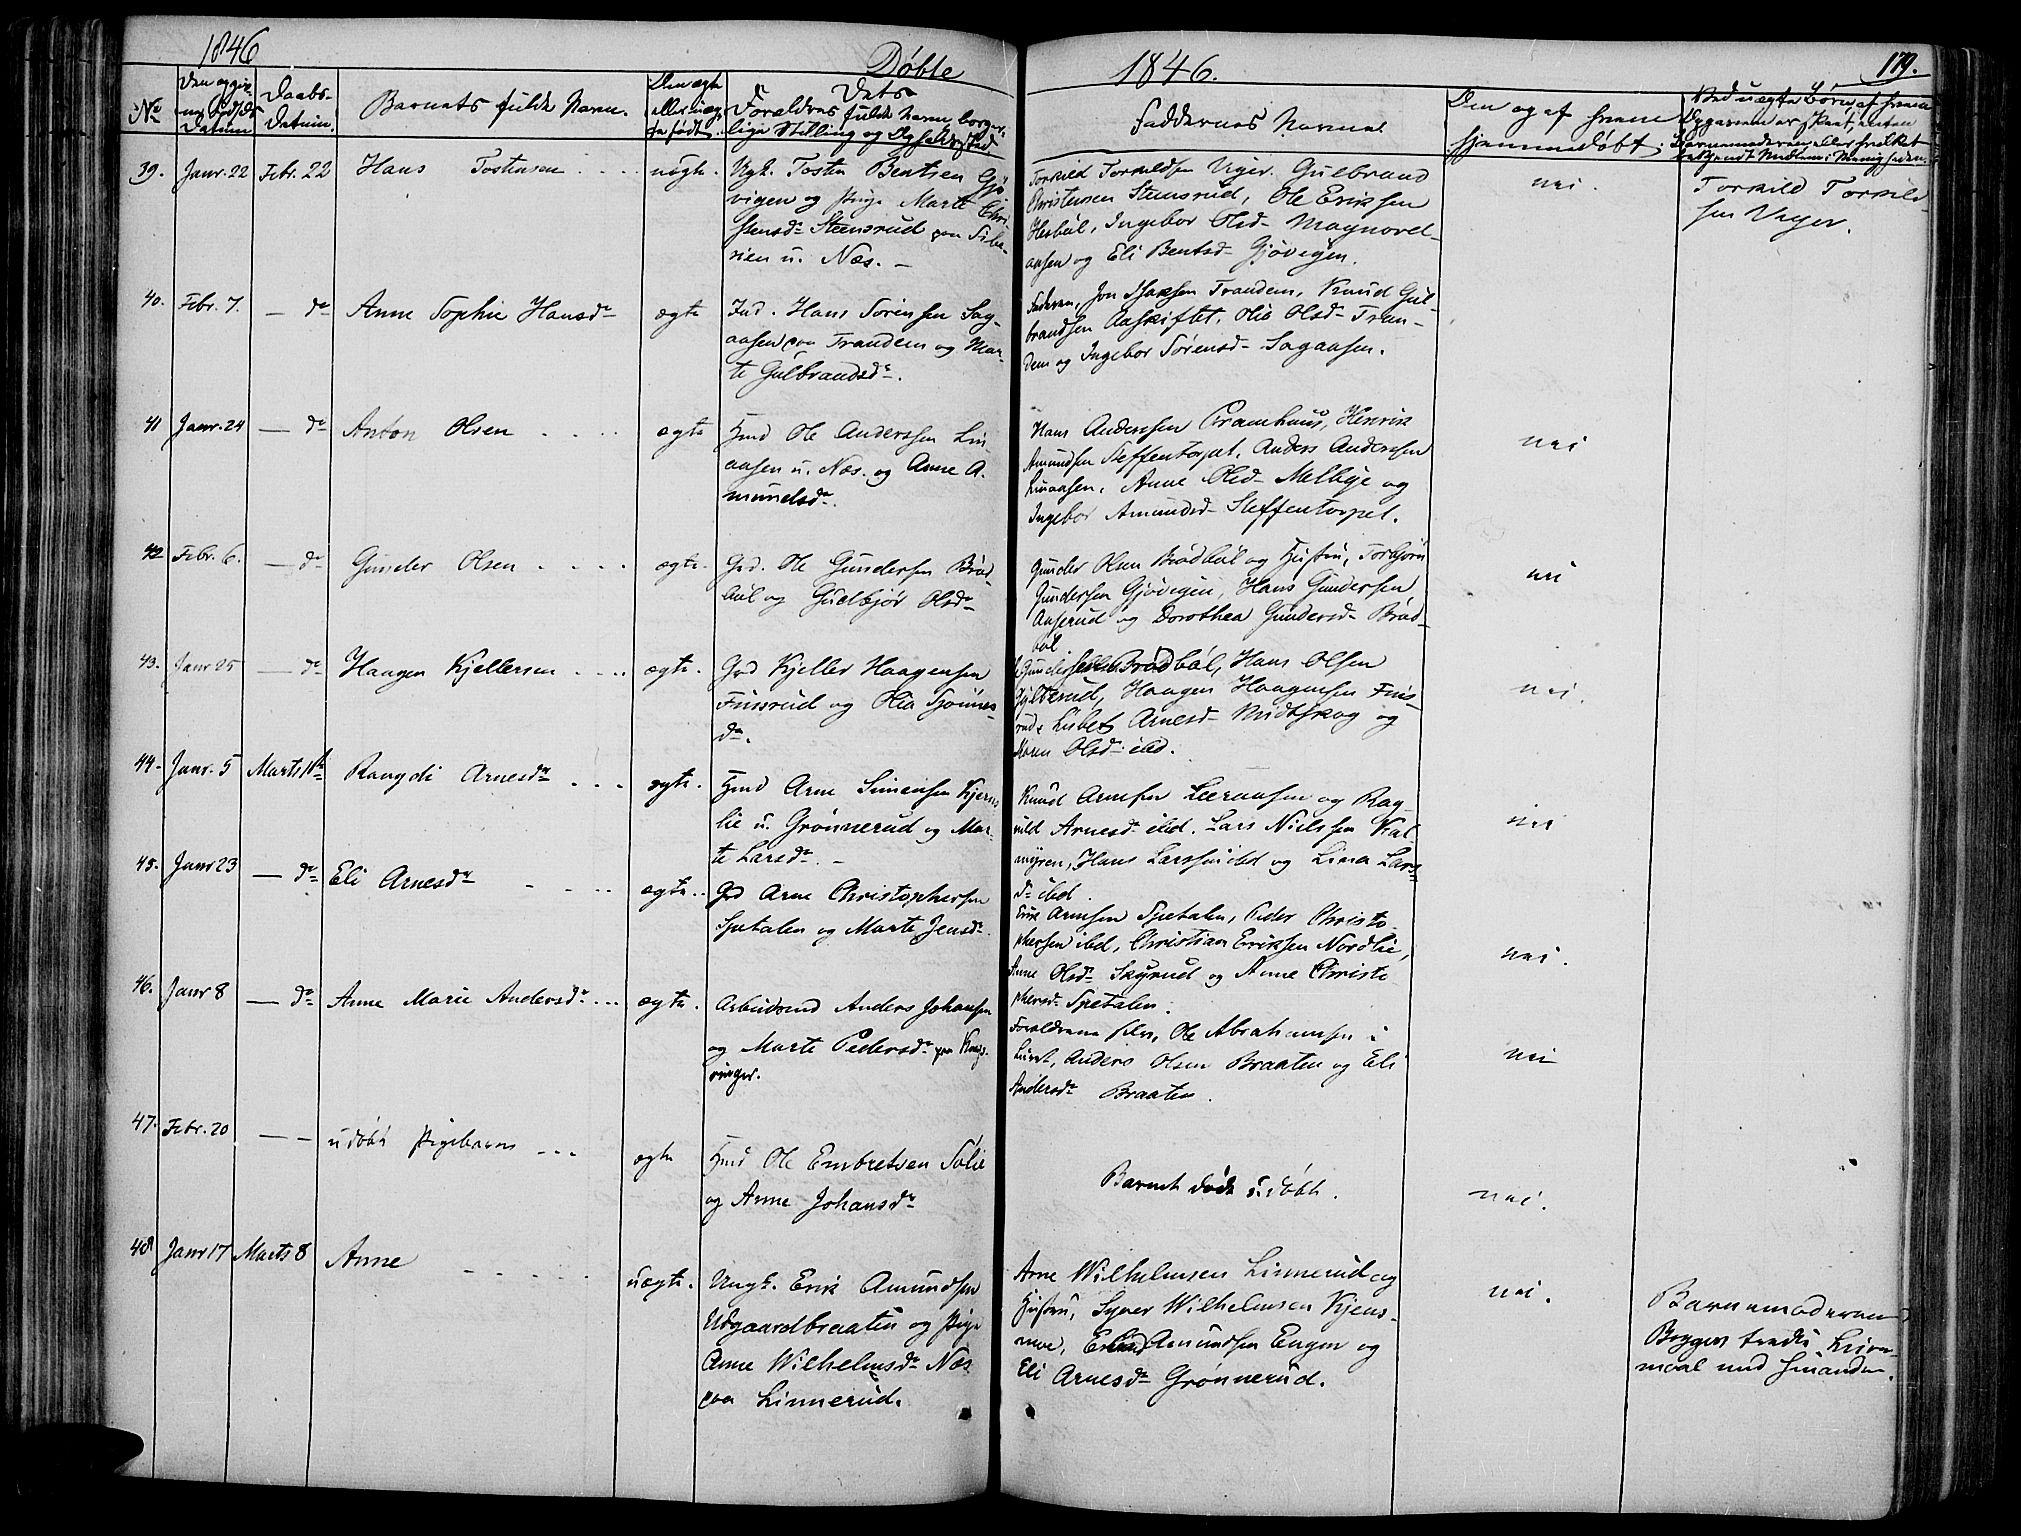 1846
Døbte
1846.
179.
No
Daabs-
Datum.
Barnets fulde Navn.
Forældres fulde Navn, borger-
lige Stilling og Opholdssted
Faddernes Navne.
hjemmedøbt.
39. Janr. 22 Febr. 22 Hans Tostensen
uægte. Ugk. Tosten Bentsen Gjø
vigen og Pige Marte Chri
stensdr Steensrud paa Sibe-
rien u. Næs. —
Torkild Torkildsen Uger. Gulbrand
Christensen Stensrud, Ole Eriksen
Hesbøl, Ingebor Olsd-
aasen og Eli Bentsd- Gjøvigen.
nei.
Torkild Torkild-
sen Uger.
40. Febr. 7. — do Anne Sophie Hansdr
ægte Ind. Hans Sørensen Sag-
aasen paa Trandem og Mar-
te Gulbrandsdr.
Faderen, Jon Isaksen Trandem, Knud Gul-
brandsen Aaskiftet, Olia Olsd- Tran-
dem og Ingebor Sørensd- Sagaasen.
41 Janr. 24 — do Anton Olsen
ægte Hmd Ole Anderssen Lin
aasen u. Næs. og Anne A-
mundsdr.
Hans Anderssen Pramhuus, Henrik
Amundsen Steffentorpet, Anders Anderssen
Linaasen, Anne Olsd- Melbye og
Ingebor Amundsd- Steffentorpet.
nei
42 Febr. 6. — do Gunder Olsen
ægte. Grd. Ole Gundersen Brød
bøl og Gudbjør Olsdr
Gunder Olsen Brødbøl og Hustru, Torbjørn
Gundersen Gjøvigen, Hans Gundersen
Aaserud og Dorothea Gundersd- Brød-
bøl
nei
43. Janr 25 — do Haagen Kjellersen
ægte. Grd Kjeller Haagensen
Finsrud og Olia
dr.
Gundersen Brødbøl, Hans Olsen
Gylterud, Haagen Haagensen Fins-
rud, Lisbet Arnesd- Midtskog og
Karen Olsd- ibd.
nei.
44. Janr. 5 Marts 1ste Rangdi Arnesdr
ægte. Hmd Arne Simensen Kjerns
lie u. Grønnerud og Mar-
te Larsdr. —
Knud Arnesen Leeraasen og Rag-
nild Arnesd- ibd. Lars Nielssen Kal
myren, Hans Larssen ibd og Lina Lars-
dr ibd.
nei
45. Janr 23 — do Eli Arnesdr
ægte. Grd Arne Christophersen
Spetalen og Marte Jensdr.
Erik Arnesen Spetalen, Peder Christo
phersen ibd, Christian Eriksen Nordlie,
Anne Olsdr Skyrud og Anne Christo
phersdr Spetalen.
nei.
46. Janr 8 — do Anne Marie Andersdr
ægte. Arbeidsmd Anders Johansen
og Marte Pedersdr paa Kongs-
vinger.
Forældrene selv, Ole Abrahamsen i
Lunet, Anders Olsen Braaten og Eli
Andersdr Braaten.
nei
47. Febr. 20 — — udøbt Pigebarn
ægte Hmd Ole Embretsen Sølie
og Anne Johansdr
Barnet døde udøbt.
nei.
48 Janr 17 Marts 8 Anne
uægte. Ungk. Erik Amundsen
Udgaardbraaten og Pige
Anne Wilhelmsdr Næs
paa Linnerud.
Arne Wilhelmsen Linnerud og
Hustru, Syver Wilhelmsen Kjens-
moe, Amundsen Engen og
Eli Arnesdr Grønnerud.
nei.
Barnemoderens
Brøgers tredie Leier-
maal med